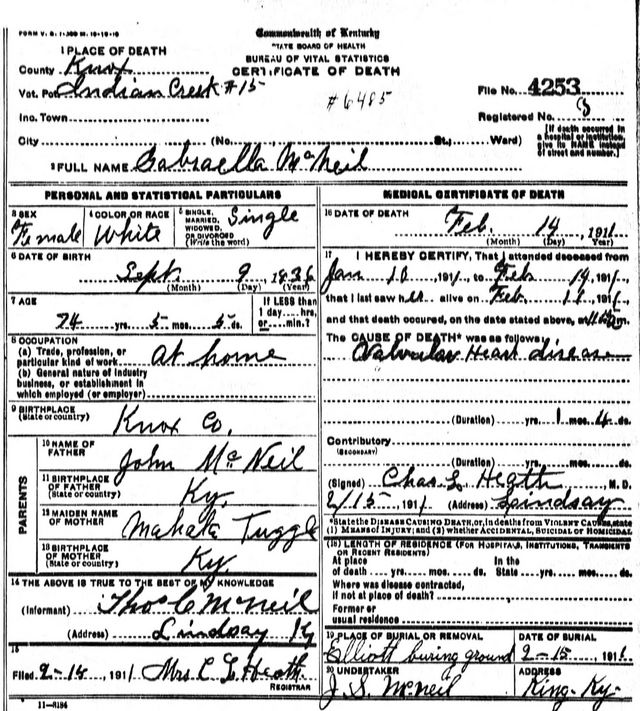 FORM V. S. 1-
Commonwealth of Kentucky
STATE BOARD OF HEALTH
BUREAU OF VITAL STATISTICS
CERTIFICATE OF DEATH
1 PLACE OF DEATH
County Knox
Vot. Pct Indian Creek #15
#6485
File No. 4253
Inc. Town
Registered No. 8
City (No. St., Ward)
[If death occurred in a hospital or institution, give its NAME instead of street and number.]
2 FULL NAME Gabraella McNeil
PERSONAL AND STATISTICAL PARTICULARS
3 SEX Female
4 COLOR OR RACE White
5 SINGLE, MARRIED, WIDOWED, OR DIVORCED (Write the word) Single
6 DATE OF BIRTH
Sept 9, 1836
(Month) (Day) (Year)
7 AGE
74 yrs. 5 mos. 5 ds.
If LESS than 1 day....hrs. or....min.?
8 OCCUPATION
(a) Trade, profession, or particular kind of work At home
(b) General nature of industry business, or establishment in which employed (or employer)
9 BIRTHPLACE
(State or country) Knox Co,
PARENTS
10 NAME OF FATHER John McNeil
11 BIRTHPLACE OF FATHER (State or country) Ky.
12 MAIDEN NAME OF MOTHER Mahala Tuggle
13 BIRTHPLACE OF MOTHER (State or country) Ky
14 THE ABOVE IS TRUE TO THE BEST OF MY KNOWLEDGE
(Informant) Thos C McNeil
(Address) Lindsay Ky
15
Filed 2-14, 1911 Mrs C L Heath
REGISTRAR
11-8184
MEDICAL CERTIFICATE OF DEATH
16 DATE OF DEATH
Feb. 14, 1911
(Month) (Day) (Year)
17 I HEREBY CERTIFY, That I attended deceased from
Jan 10 1911, to Feb 14, 1911,
that I last saw her alive on Feb 1911,
and that death occurred, on the date stated above, at
The CAUSE OF DEATH* was as follows:
Valvular Heart disease
(Duration) yrs. 1 mos. 4 ds.
Contributory
(SECONDARY)
(Duration) yrs. mos. ds.
(Signed) Chas L Heath, M. D.
2/15, 1911 (Address) Lindsay
*State the DISEASE CAUSING DEATH, or, in deaths from VIOLENT CAUSES, state
(1) MEANS of INJURY; and (2) whether ACCIDENTAL, SUICIDAL or HOMICIDAL
(18) LENGTH OF RESIDENCE (FOR HOSPITALS, INSTITUTIONS, TRANSIENTS OR RECENT RESIDENTS)
At place of death yrs. mos. ds. In the State yrs. mos. ds.
Where was disease contracted, if not at place of death?
Former or usual residence
19 PLACE OF BURIAL OR REMOVAL
Elliott buring ground
DATE OF BURIAL
2-15, 1911
20 UNDERTAKER
J. S. McNeil
ADDRESS
King-Ky-